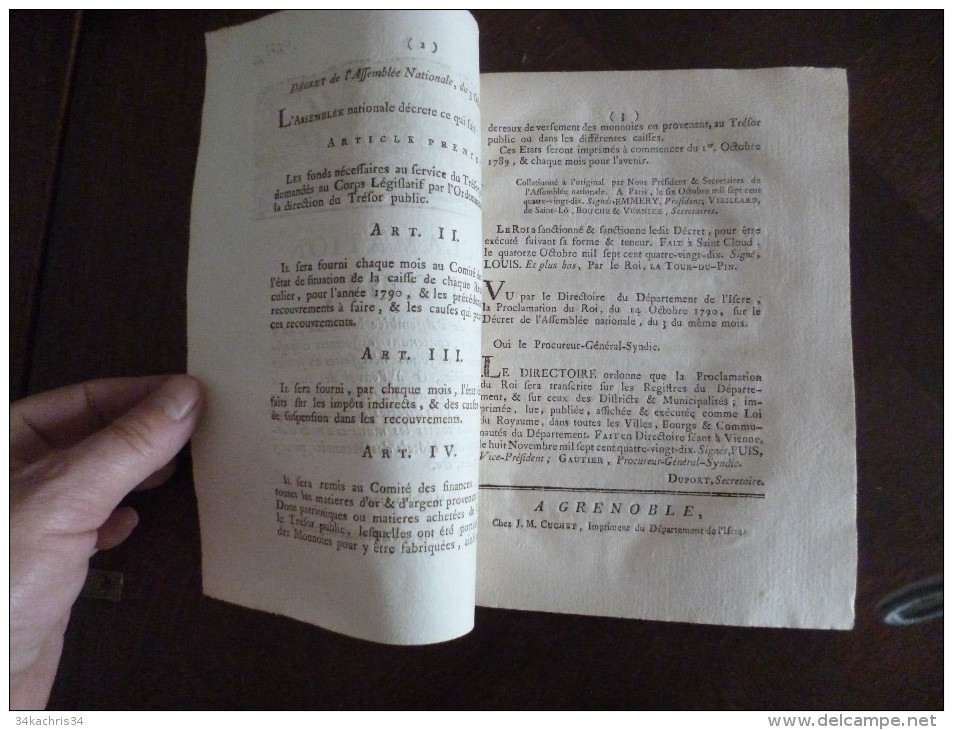 ( 2 )
DÉCRET de l'Assemblée Nationale, du 3
L'ASSEMBLÉE nationale décrete ce qui suit
ARTICLE PREMI
Les fonds nécessaires au service du Trésor
demandés au Corps Législatif par l'Ordonn
la direction du Trésor public.
ART. II.
IL sera fourni chaque mois au Comité de
l'état de situation de la caisse de chaque
culier, pour l'année 1790, & les précédens
recouvrements à faire, & les causes qui
ces recouvrements.
ART. III.
IL sera fourni, par chaque mois, l'état
faits sur les impôts indirects, & des causes
de suspension dans les recouvrements.
ART. IV.
IL sera remis au Comité des finances
toutes les matieres d'or & d'argent provenan
Dons patriotiques ou matieres achetées de
le Trésor public, lesquelles ont été
des Monnoies pour y être fabriquées,
( 3 )
dereaux de versement des monnoies en provenant, au Trésor
public ou dans les différentes caisses.
Ces Etats seront imprimés à commencer du 1er. Octobre
1789, & chaque mois pour l'avenir.
Collationné à l'original par Nous Président & Secretaires de
l'Assemblée nationale. A Paris, le six Octobre mil sept cent
quatre-vingt-dix. Signés, EMMERY, Président; VIEILLARD,
de Saint-Lô, BOUCHE & VERNIER, Secretaires.
LE ROI a sanctionné & sanctionne ledit Décret, pour être
exécuté suivant sa forme & teneur. FAIT à Saint Cloud,
le quatorze Octobre mil sept cent quatre-vingt-dix. Signé,
LOUIS. Et plus bas, Par le Roi, LA TOUR-DU-PIN.
VU par le Directoire du Département de l'Isere,
la Proclamation du Roi, du 14 Octobre 1790, sur le
Décret de l'Assemblée nationale, du 3 du même mois.
Oui le Procureur-Général-Syndic.
LE DIRECTOIRE ordonne que la Proclamation
du Roi sera transcrite sur les Registres du Départe-
ment, & sur ceux des Districts & Municipalités; im-
primée, lue, publiée, affichée & exécutée comme Loi
du Royaume, dans toutes les Villes, Bourgs & Commu-
nautés du Département. FAIT en Directoire séant à Vienne,
le huit Novembre mil sept cent quatre-vingt-dix. Signés, PUIS,
Vice-Président; GAUTIER, Procureur-Général-Syndic.
DUPORT, Secretaire.
A GRENOBLE,
Chez J. M. CUCHET, Imprimeur du Département de l'Isere.
34kachris34
www.delcampe.net